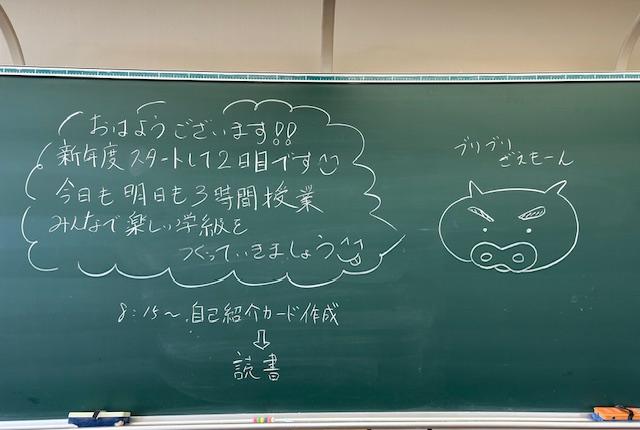 おはようございます!!
新年度スタートして2日目です
今日も明日も3時間授業
みんなで楽しい学級を
つくっていきましょう
ブリブリ
ごえもーん
8:15〜 自己紹介カード作成
⇩
読書